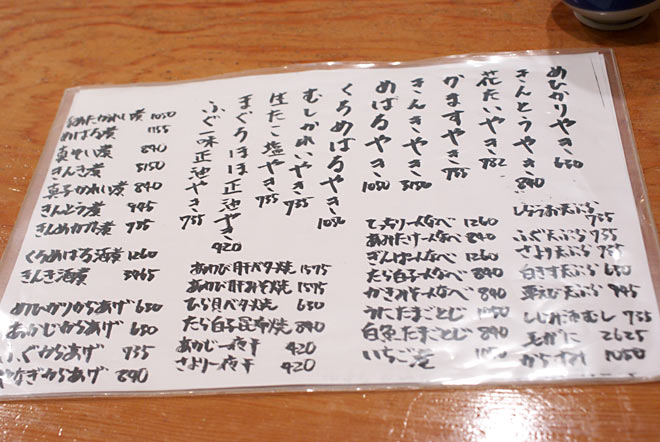 めひかりやき 650
きんとうやき 840
花だいやき 752
かますやき 735
きんきやき 3150
めばるやき 1050
くろめばるやき 1050
むしかれいやき 735
ばたこ塩やき 735
まぐろほほ正油やき 420
ふぐ一味正油やき 735
しらうお天ぷら 735
ふぐ天ぷら 735
さより天ぷら 735
白きす天ぷら 650
車えび天ぷら 945
しじみ酒むし 735
毛がに 2625
からすみ 1050
てっちり一人なべ 1260
あみたけ一人なべ 840
ぎんぽ一人なべ 1260
たら白子一人なべ 840
かきみそ一人なべ 840
うにたまごとじ 1050
白魚たまごとじ 840
いちご煮 1050
あわび肝バタ焼 1575
あわび肝みそ焼 1575
たいら貝バタ焼 650
たら白子昆布焼 840
あかじ一夜干 420
さより一夜干 420
なめたかれい煮 1050
めばる煮 1155
真ぞい煮 840
きんき煮 3150
真子かれい煮 840
きんとう煮 945
きんめかぶと煮 735
くろめばる酒煮 1260
きんき酒煮 3465
めひかりからあげ 650
あかじからあげ 650
ふぐからあげ 735
やなぎからあげ 840